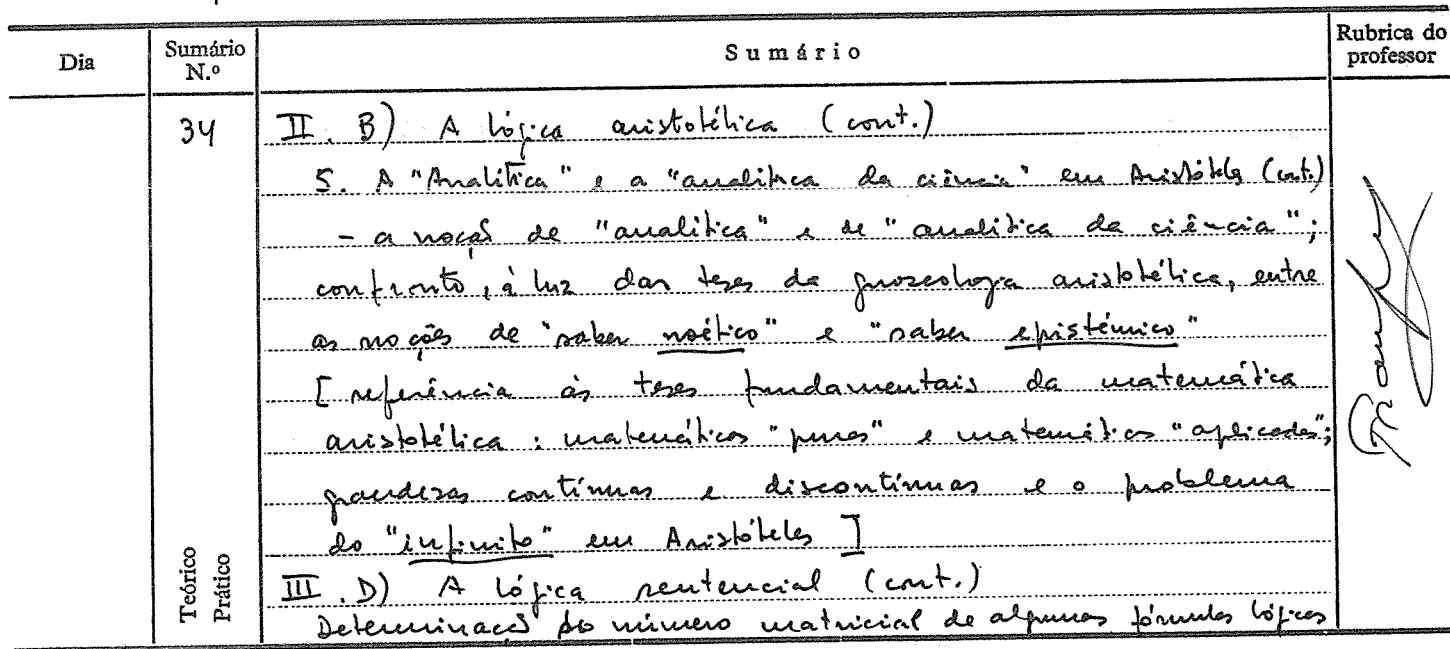 Dia
Sumário N.º
Sumário
Rubrica do professor
34
II. B) A lógica aristotélica (cont.)
5. A "Analítica" e a "analítica da ciência" em Aristóteles (cont.)
- a noção de "analítica" e de "analítica da ciência";
confronto, à luz das teses da gnoseologia aristotélica, entre
as noções de "saber noético" e "saber epistémico"
[ referência às teses fundamentais da matemática
aristotélica: matemáticas "puras" e matemáticas "aplicadas";
grandezas contínuas e discontínuas e o problema
do "infinito" em Aristóteles ]
III. D) A lógica sentencial (cont.)
Determinação do número matricial de algumas fórmulas lógicas
Teórico
Prático